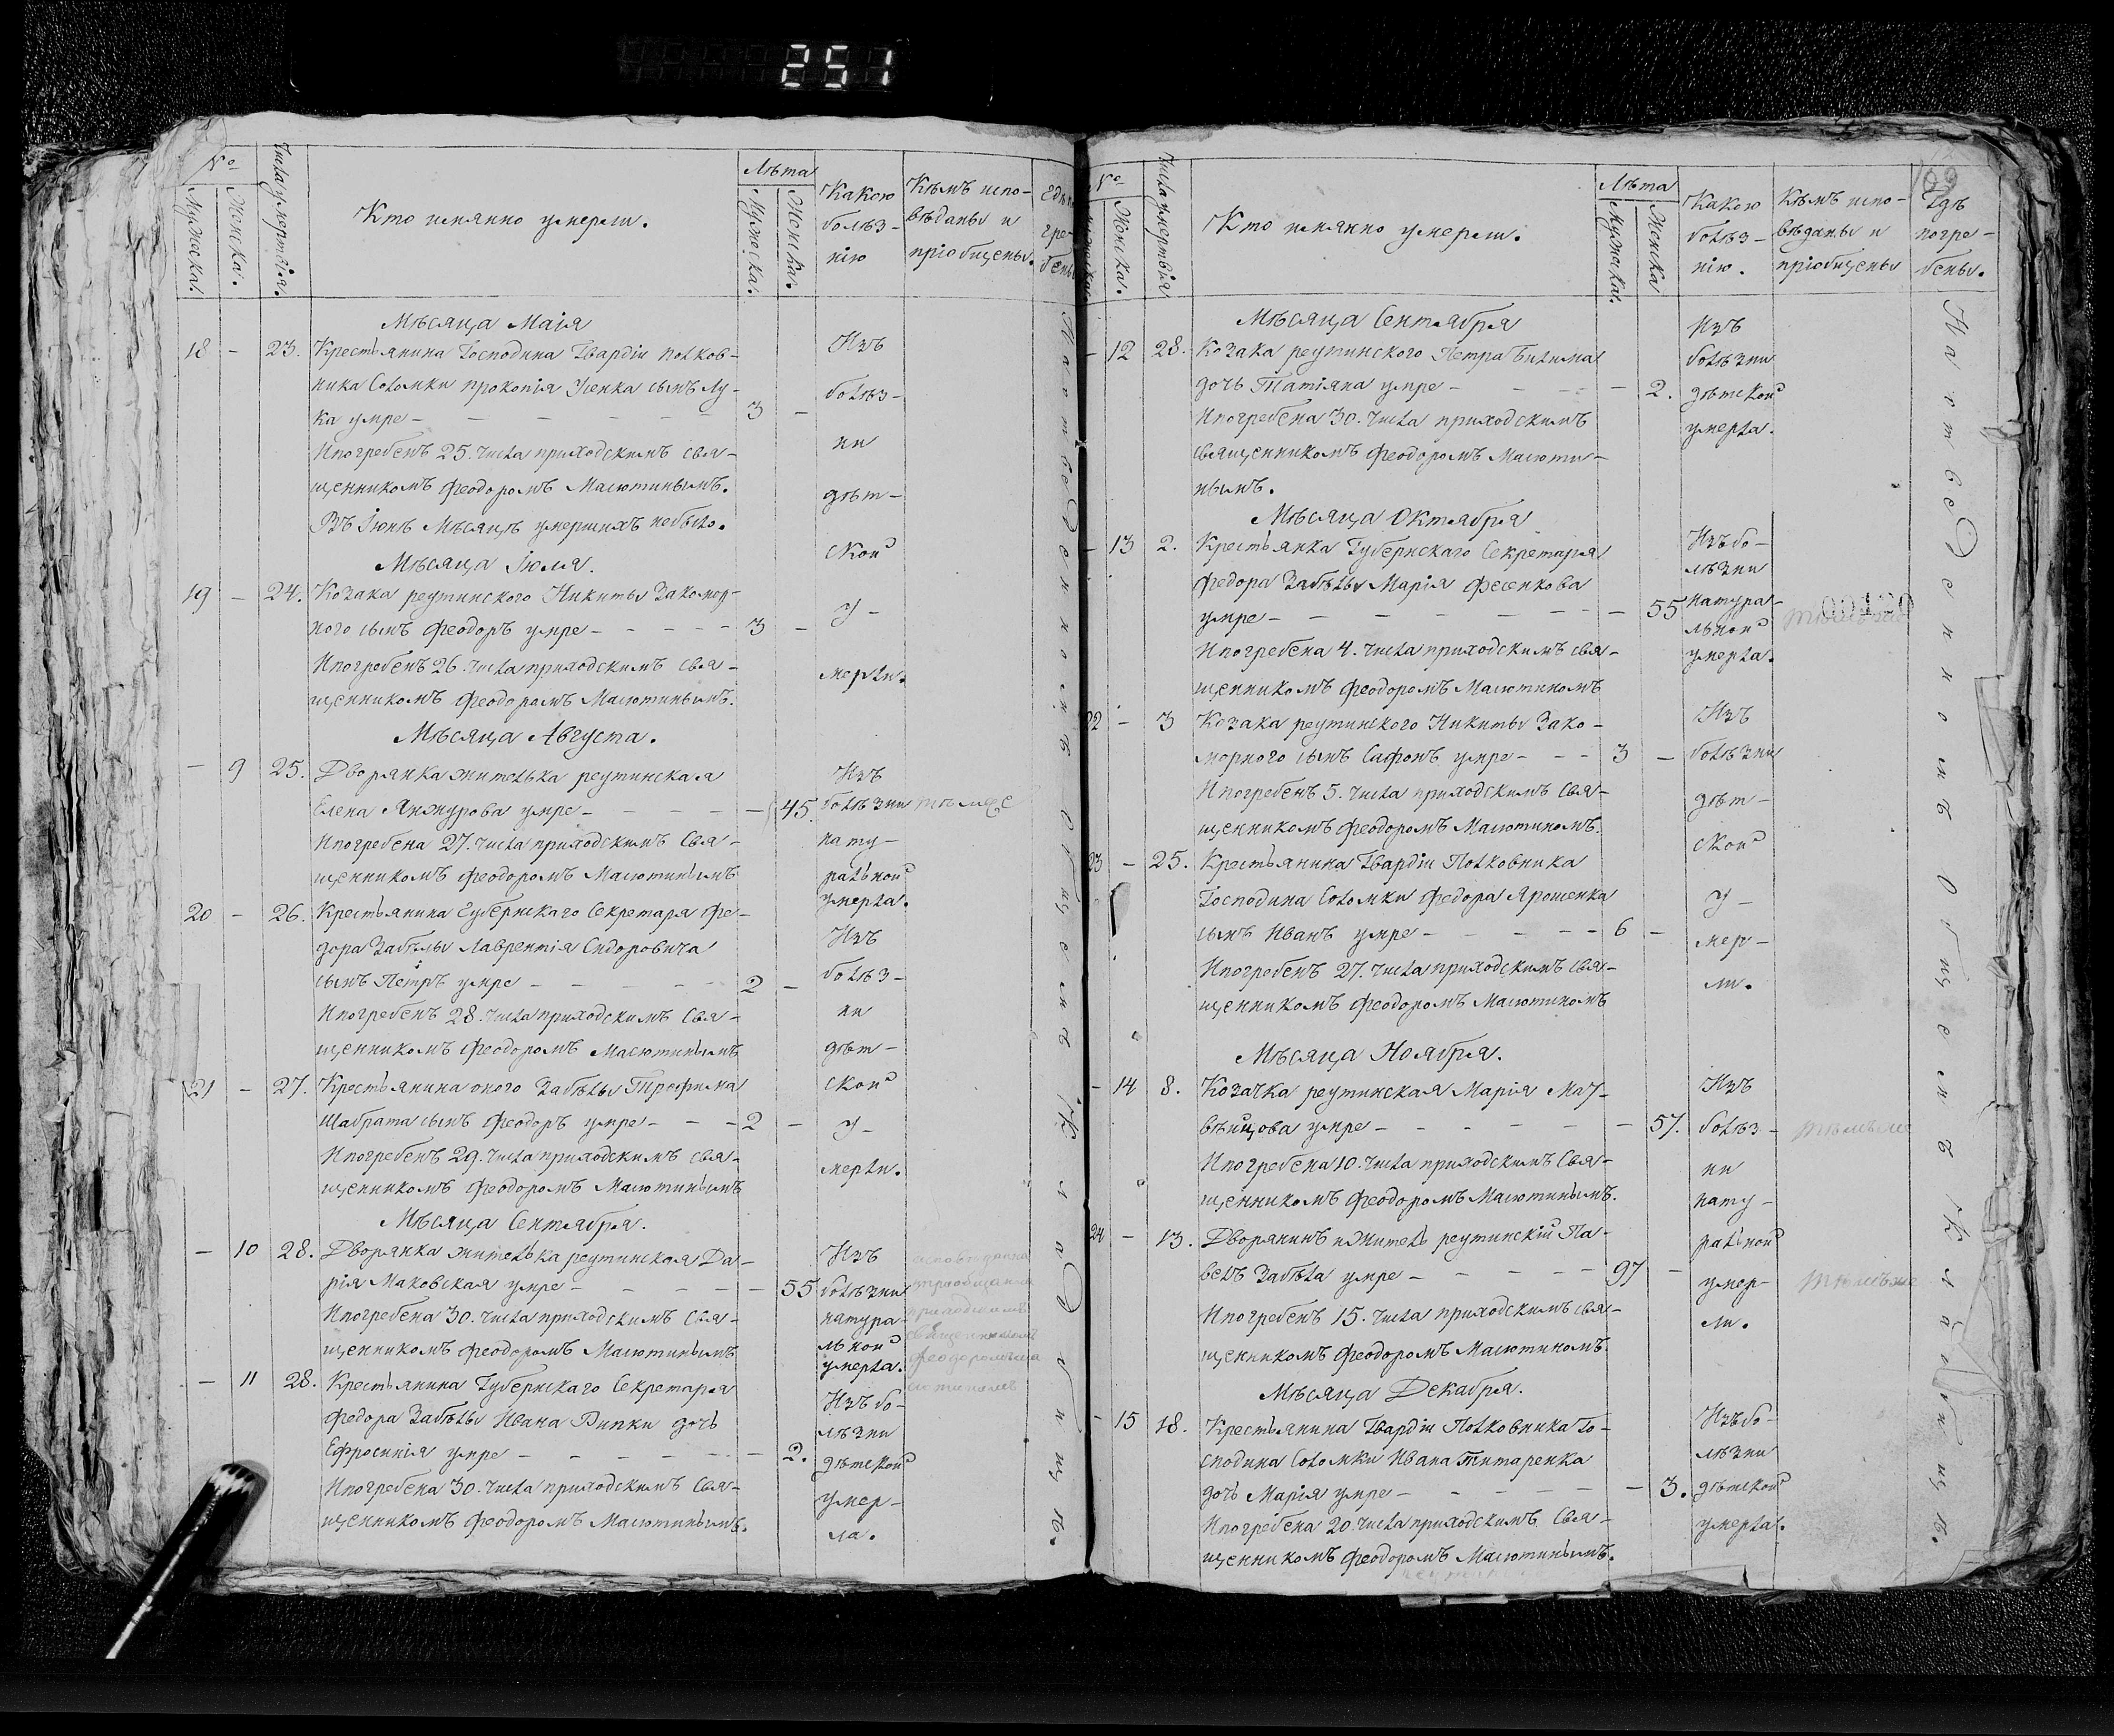 251
№
Мужеска.
Женска.
Числа умертвія.
Кто имянно умерли.
Лѣта
Мужеска.
Женска.
Какою
болѣз-
нію
Кѣмъ испо-
вѣданы и
пріобщены.
Мѣсяца Маія
18 - 23. Крестьянина Господина Гвардіи полков-
ника Соломки прокопія Уенка сынъ Лу-
ка умре - 3 -
Ипогребенъ 25. числа приходскимъ свя-
щенникомъ феодоромъ Масютинымъ.
Въ Іюнѣ Мѣсяцѣ умершихъ небыло.
Мѣсяца Іюля.
19 - 24. Козака реутинского Никиты Закомор-
ного сынъ феодоръ умре - 3 -
Ипогребенъ 26. числа приходскимъ свя-
щенникомъ феодоромъ Масютинымъ.
Изъ
болѣз-
ни
дѣт-
ской
у-
мерли.
Мѣсяца Августа.
- 9 25. Дворянка жителька реутинская
Елена Янжурова умре - 45.
Ипогребена 27. числа приходскимъ Свя-
щенникомъ феодоромъ Масютинымъ
Изъ
болѣзни
нату-
ральной
умерла.
20 - 26. Крестьянина Губернскаго Секретаря Фе-
дора Забѣлы Лаврентія Сидоровича
сынъ Петръ умре - 2 -
Ипогребенъ 28. числа приходскимъ Свя-
щенникомъ феодоромъ Масютинымъ
21 - 27. Крестьянина оного Забѣлы Трофима
Шабрата сынъ феодоръ умре - 2 -
Ипогребенъ 29. числа приходскимъ свя-
щенникомъ феодоромъ Масютинымъ
Изъ
болѣз-
ни
дѣт-
ской
у-
мерли.
Мѣсяца Сентября.
- 10 28. Дворянка жителька реутинская Да-
рія Маковская умре - 55
Ипогребена 30. числа приходскимъ Свя-
щенникомъ феодоромъ Масютинымъ
Изъ
болѣзни
натура-
льной
умерла.
приходскимъ
священникомъ
- 11 28. Крестьянина Губернскаго Секретаря
Федора Забѣлы Ивана Рипки дочь
Ефросинія умре - 2.
Ипогребена 30. числа приходскимъ Свя-
щенникомъ феодоромъ Масютинымъ.
Изъ бо-
лѣзни
дѣтской
умер-
ла.
На отведенномъ общемъ Кладбищѣ.
№
Женска.
Числа умертвія
Кто имянно умерли.
Лѣта
Мужеска.
Женска
Какою
болѣз-
нію.
Кѣмъ испо-
вѣданы и
пріобщены
Гдѣ
погре-
бены.
Мѣсяца Сентября
- 12 28. Козака реутинского Петра Билима
дочь Татіяна умре - 2.
Ипогребена 30. числа приходскимъ
священникомъ феодоромъ Масюти-
нымъ.
Изъ
болѣзни
дѣтской
умерла.
Мѣсяца Октября
- 13 2. Крестьянка Губернскаго Секретаря
Федора Забѣлы Марія Фесенкова
умре - 55
Ипогребена 4. числа приходскимъ свя-
щенникомъ феодоромъ Масютиномъ
Изъ бо-
лѣзни
натура-
льной
умерла.
22 - 3 Козака реутинского Никиты Зако-
морного сынъ Сафонъ умре - 3 -
Ипогребенъ 5. числа приходскимъ Свя-
щенникомъ феодоромъ Масютиномъ.
23 - 25. Крестьянина Гвардіи Полковника
Господина Соломки Федора Ярошенка
сынъ Иванъ умре - 6 -
Ипогребенъ 27. числа приходскимъ свя-
щенникомъ феодоромъ Масютиномъ
Изъ
болѣзни
дѣт-
ской
у-
мер-
ли.
Мѣсяца Ноября.
- 14 8. Козачка реутинская Марія Мат-
вѣйцова умре - 57.
Ипогребена 10. числа приходскимъ Свя-
щенникомъ феодоромъ Масютинымъ.
24 - 13. Дворянинъ и Житель реутинскій Па-
велъ Забѣла умре - 97 -
Ипогребенъ 15. числа приходскимъ свя-
щенникомъ феодоромъ Масютиномъ.
Изъ
болѣз-
ни
нату-
ральной
умер-
ли.
Мѣсяца Декабря.
- 15 18. Крестьянина Гвардіи Полковника Го-
сподина Соломки Ивана Титаренка
дочь Марія умре - 3.
Ипогребена 20. числа приходскимъ Свя-
щенникомъ феодоромъ Масютинымъ.
Изъ бо-
лѣзни
дѣтской
умерла.
На отведенномъ Общемъ Кладбищѣ.